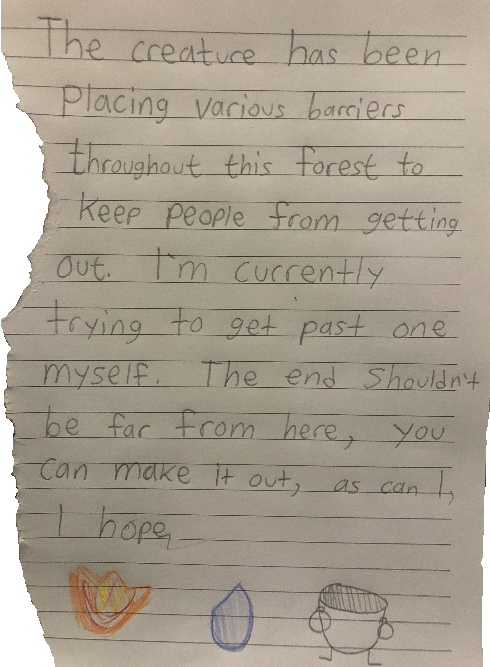 The creature has been
Placing various barriers
throughout this forest to
keep people from getting
out. I'm currently
trying to get past one
myself. The end shouldn't
be far from here, you
can make it out, as can I,
I hope,